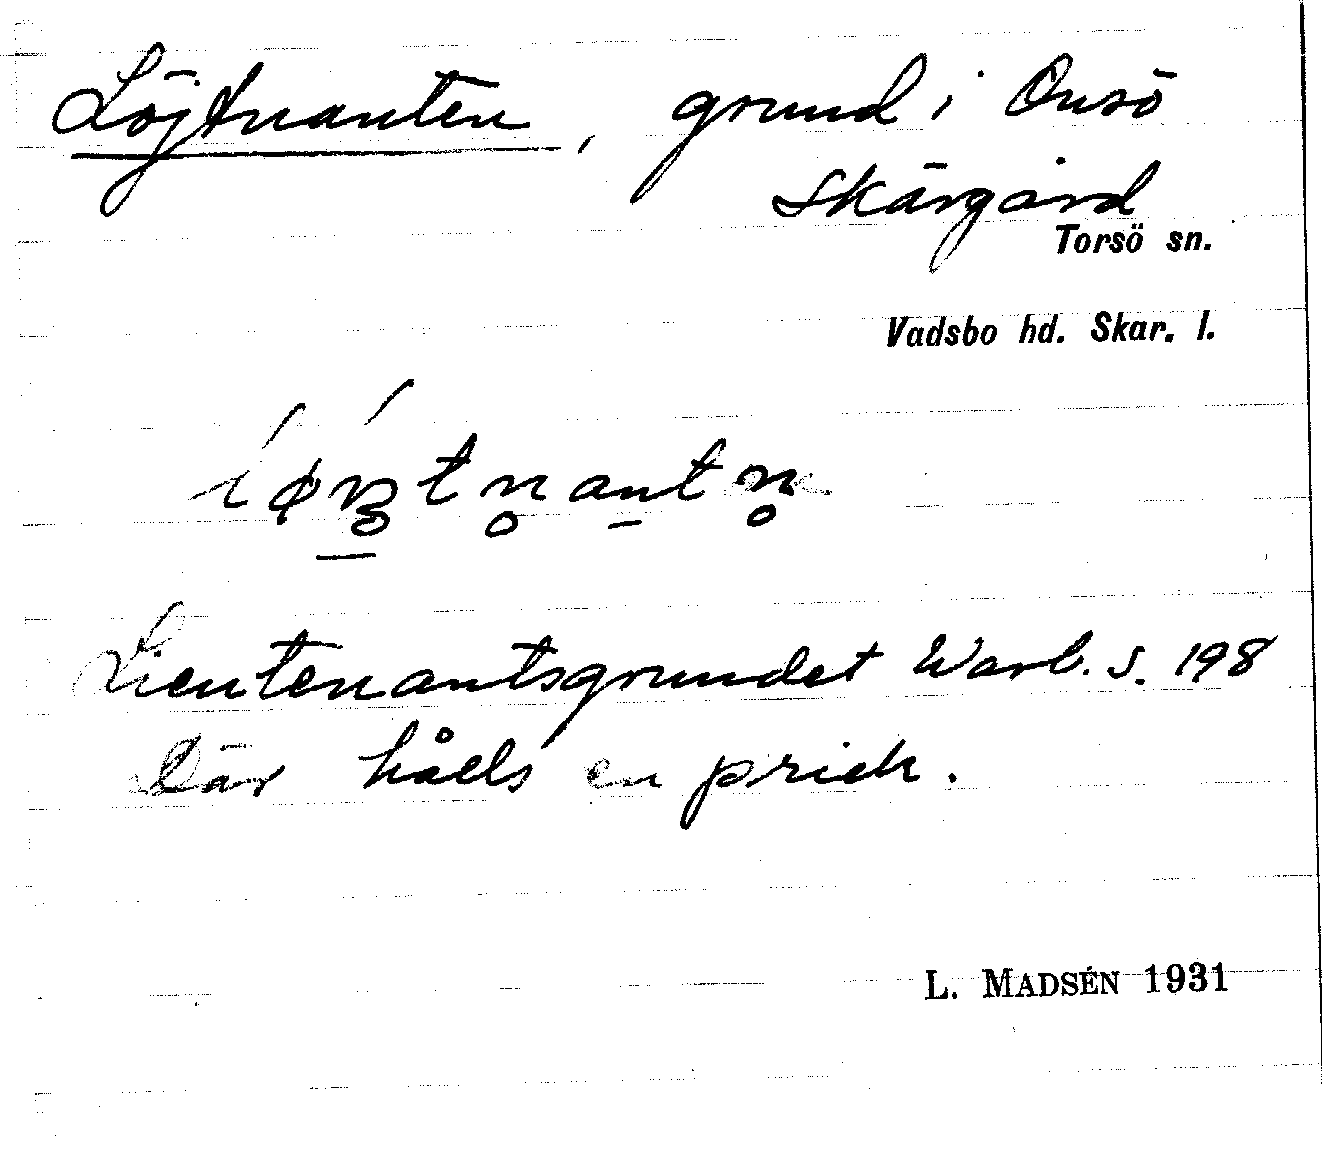 Löjtnanten, grund i Onsö
Skärgård
Torsö sn.
Vadsbo hd. Skar. l.
Lieutenantsgrundet Warb. s. 198
Där hålls en prick.
L. MADSÉN 1931